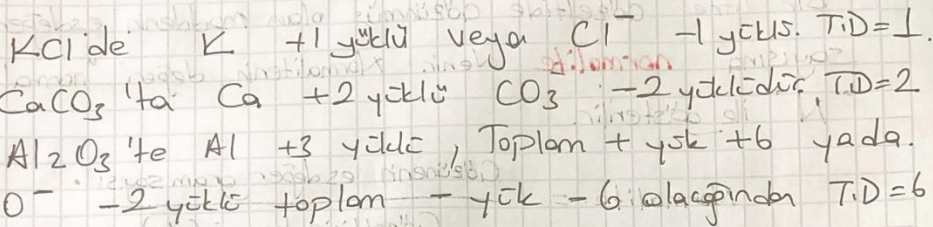 KCl de K +1 yüklü veya Cl⁻ -1 yüklü. T.D=1.
CaCO₃'ta Ca +2 yüklü CO₃ -2 yüklüdür T.D=2
Al₂O₃'te Al +3 yüklü, Toplam + yük +6 yada.
O⁻ -2 yüklü toplam - yük -6 olacağından T.D=6